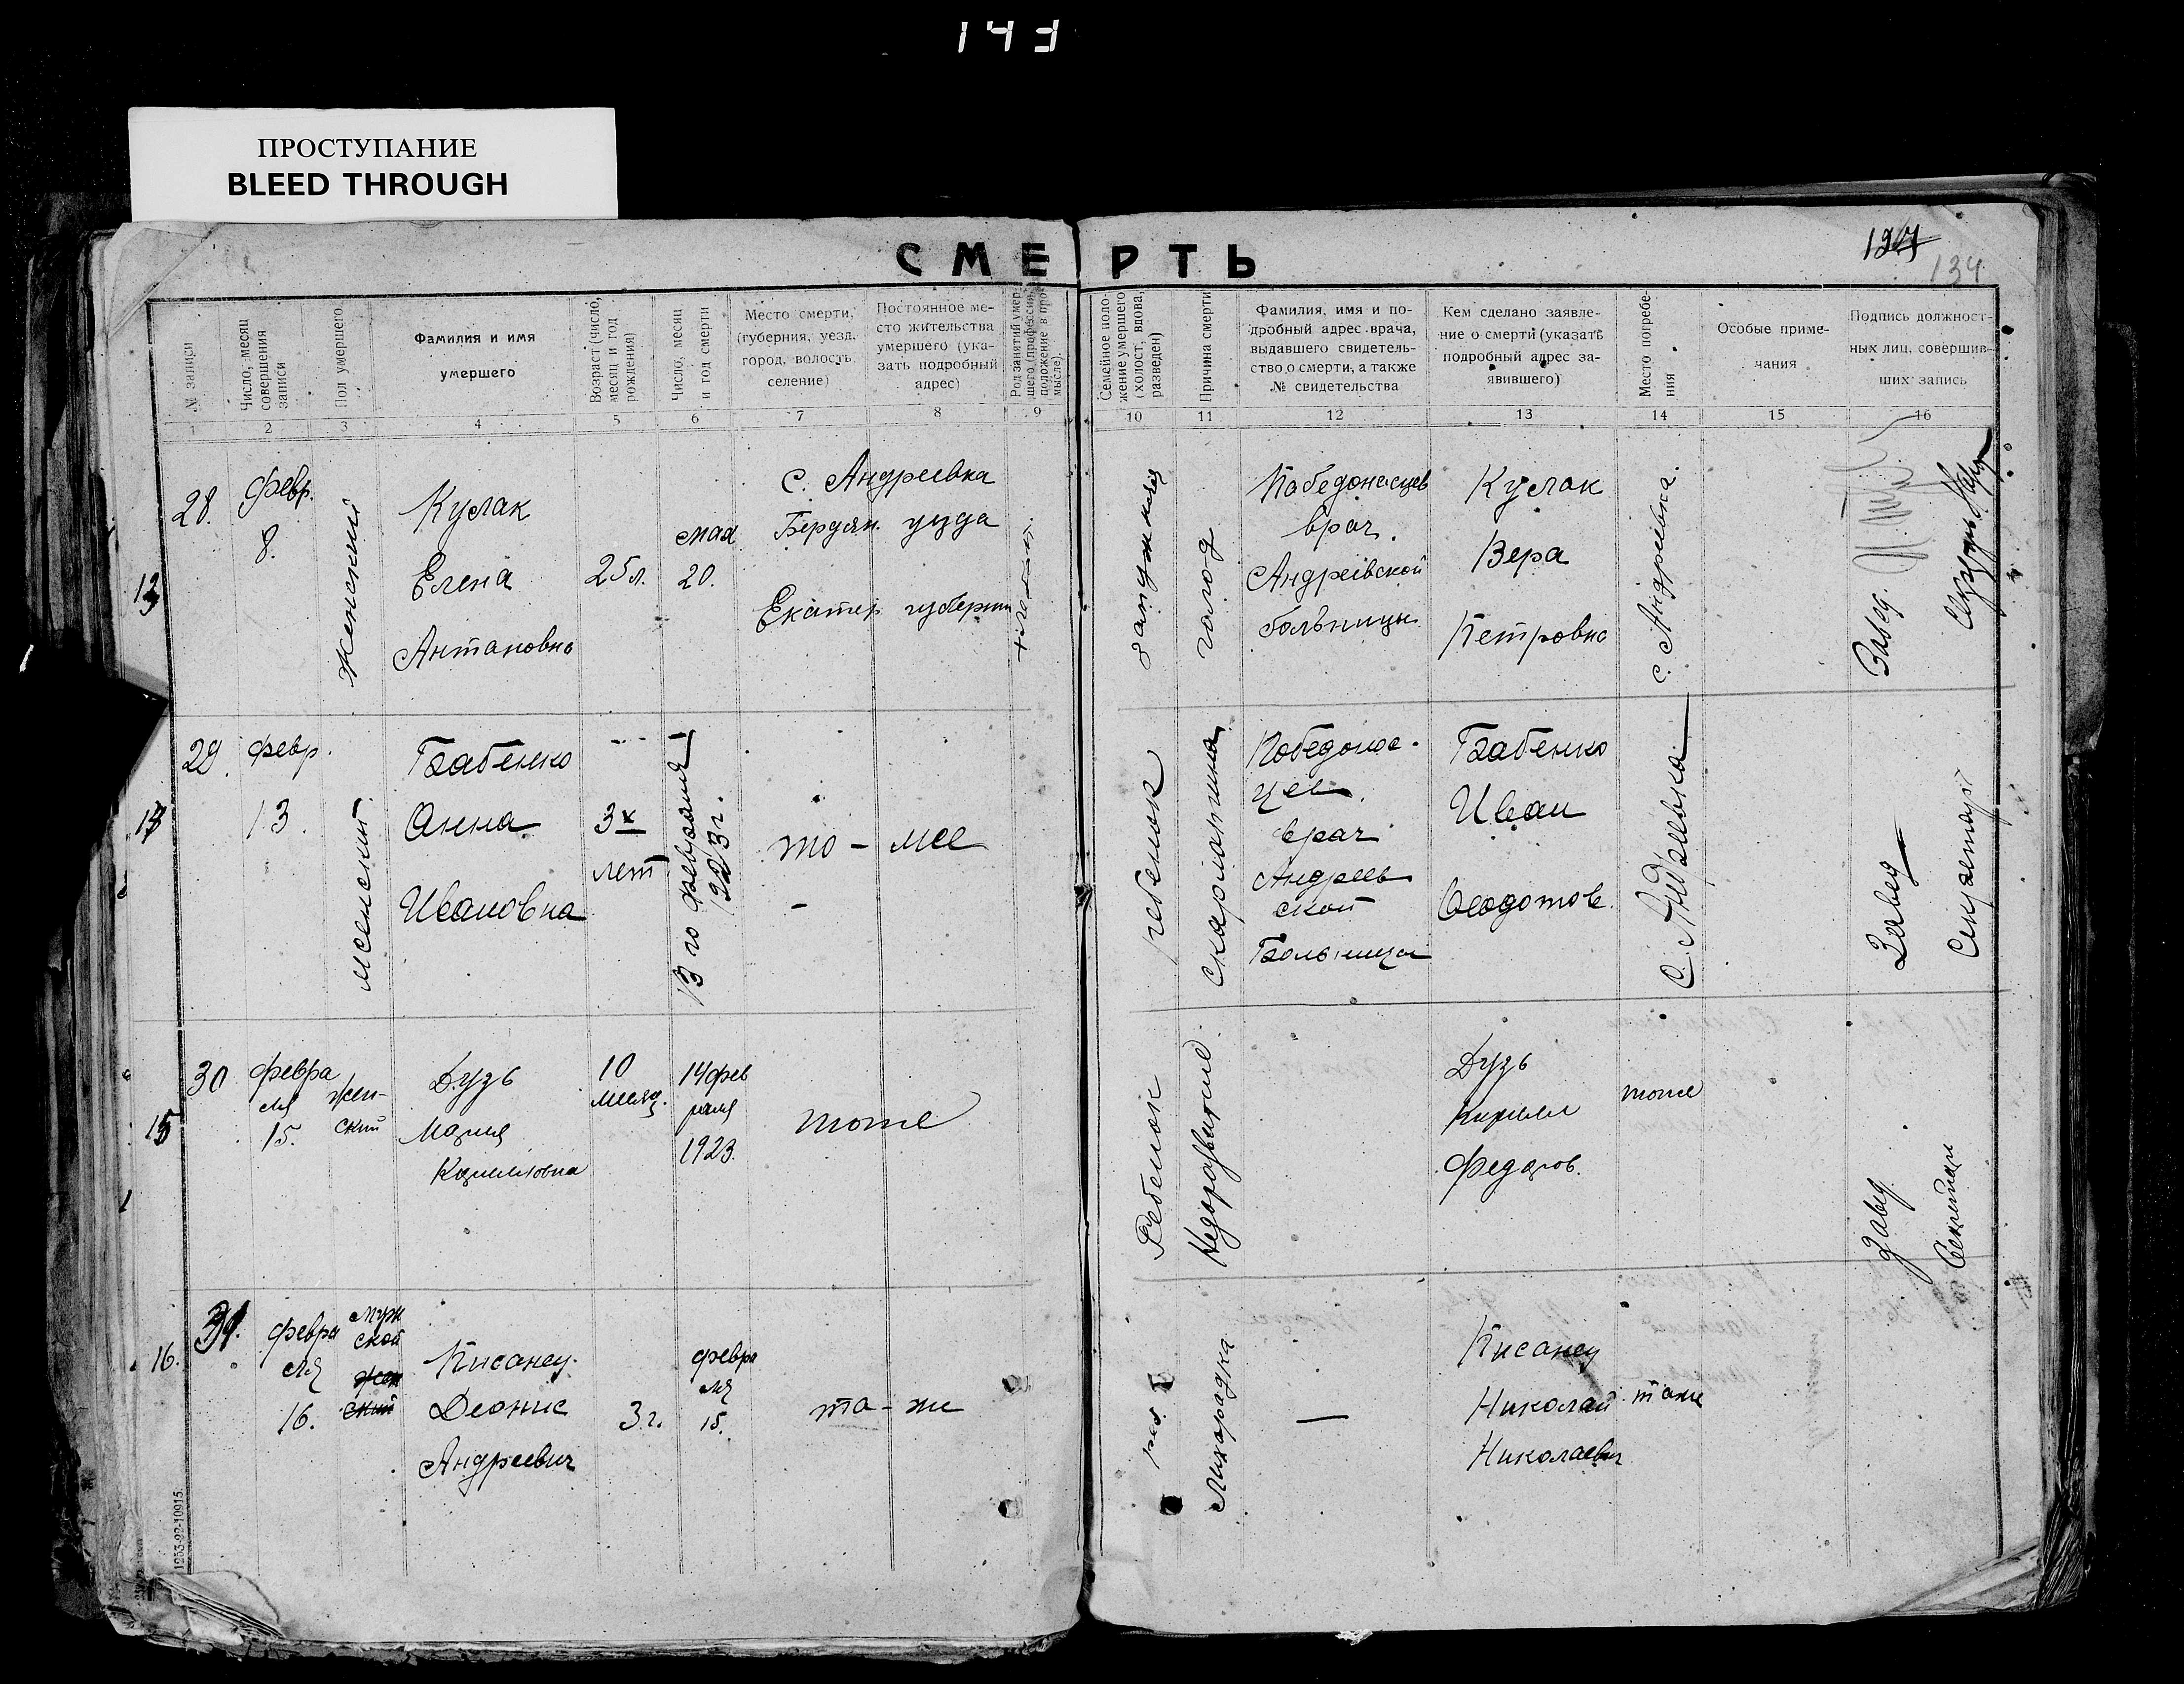 143
ПРОСТУПАНИЕ
BLEED THROUGH
СМЕРТЬ
134
№ записи
Число, месяц совершения записи
Пол умершего
Фамилия и имя
умершего
Возраст (число, месяц и год рождения)
Число, месяц и год смерти
Место смерти,
(губерния, уезд,
город, волость,
селение)
Постоянное ме-
сто жительства
умершего (ука-
зать подробный
адрес)
Род занятий умер-
шего (профессия,
положение в про-
мысле).
Семейное поло-
жение умершего
(холост, вдова,
разведен)
Причина смерти
Фамилия, имя и по-
дробный адрес врача,
выдавшего свидетель-
ство о смерти, а также
№ свидетельства
Кем сделано заявле-
ние о смерти (указать
подробный адрес за-
явившего)
Место погребе-
ния
Особые приме-
чания
Подпись должност-
ных лиц, совершив-
ших запись
1 2 3 4 5 6 7 8 9 10 11 12 13 14 15 16
28.
февр.
8.
женский
Кулак
Елена
Антановна
25 л.
мая
20.
с. Андреевка
Бердян. уезда
Екатер губернии
замужняя
голод
Победонасцев
врач.
Андреівской
больницы
Кулак
Вера
Петровна
с. Андреівка.
Завед.
29.
февр.
13.
женский
Бабенко
Анна
Ивановна
3х
лет
13 го февраля
1923 г.
то - же
-
ребенок
скарлатина
Победонос-
цев
врач
Андреев
ской
Больница
Бабенко
Иван
Феодотов.
С. Андреевка
Завед
Секретарь
30
февра
ля
15.
жен-
ский
Дузь
Мария
Кирилловна
10
месяц.
14 фев
раля
1923.
тоже
Ребенок
Недоразвитие.
Дузь
Кирилл
Федоров.
тоже
Завед
Секретарь
16.
31.
февра
ля
16.
муж
ской
жен
ский
Кисанец.
Деонис
Андреевич
3 г.
февра
ля
15.
та - же
реб.
Лихорадка
—
Кисанец
Николай
Николаевич
тоже
1253-22-10915.